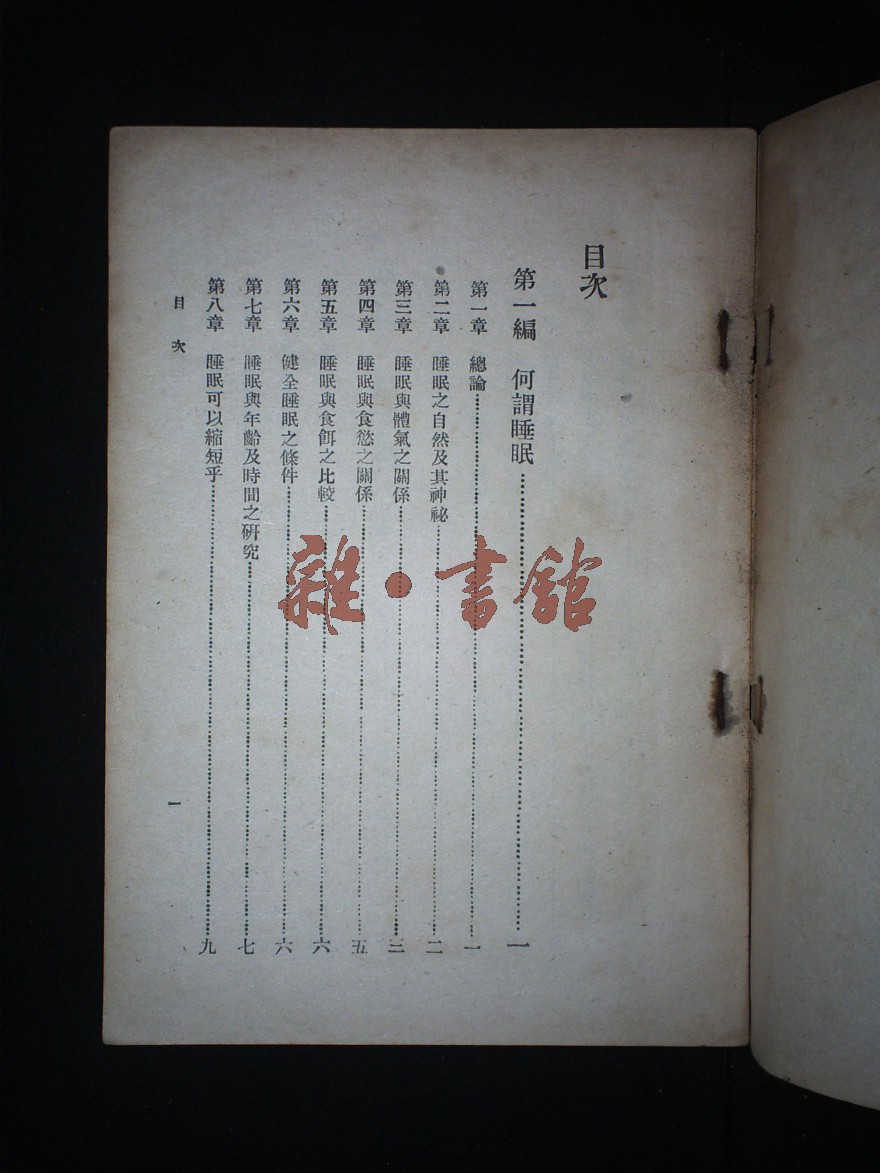 目次
第一編　何謂睡眠……一
第一章　總論……一
第二章　睡眠之自然及其神祕……二
第三章　睡眠與體氣之關係……三
第四章　睡眠與食慾之關係……五
第五章　睡眠與食餌之比較……六
第六章　健全睡眠之條件……六
第七章　睡眠與年齡及時間之研究……七
第八章　睡眠可以縮短乎……九
目次
一
雜·書館